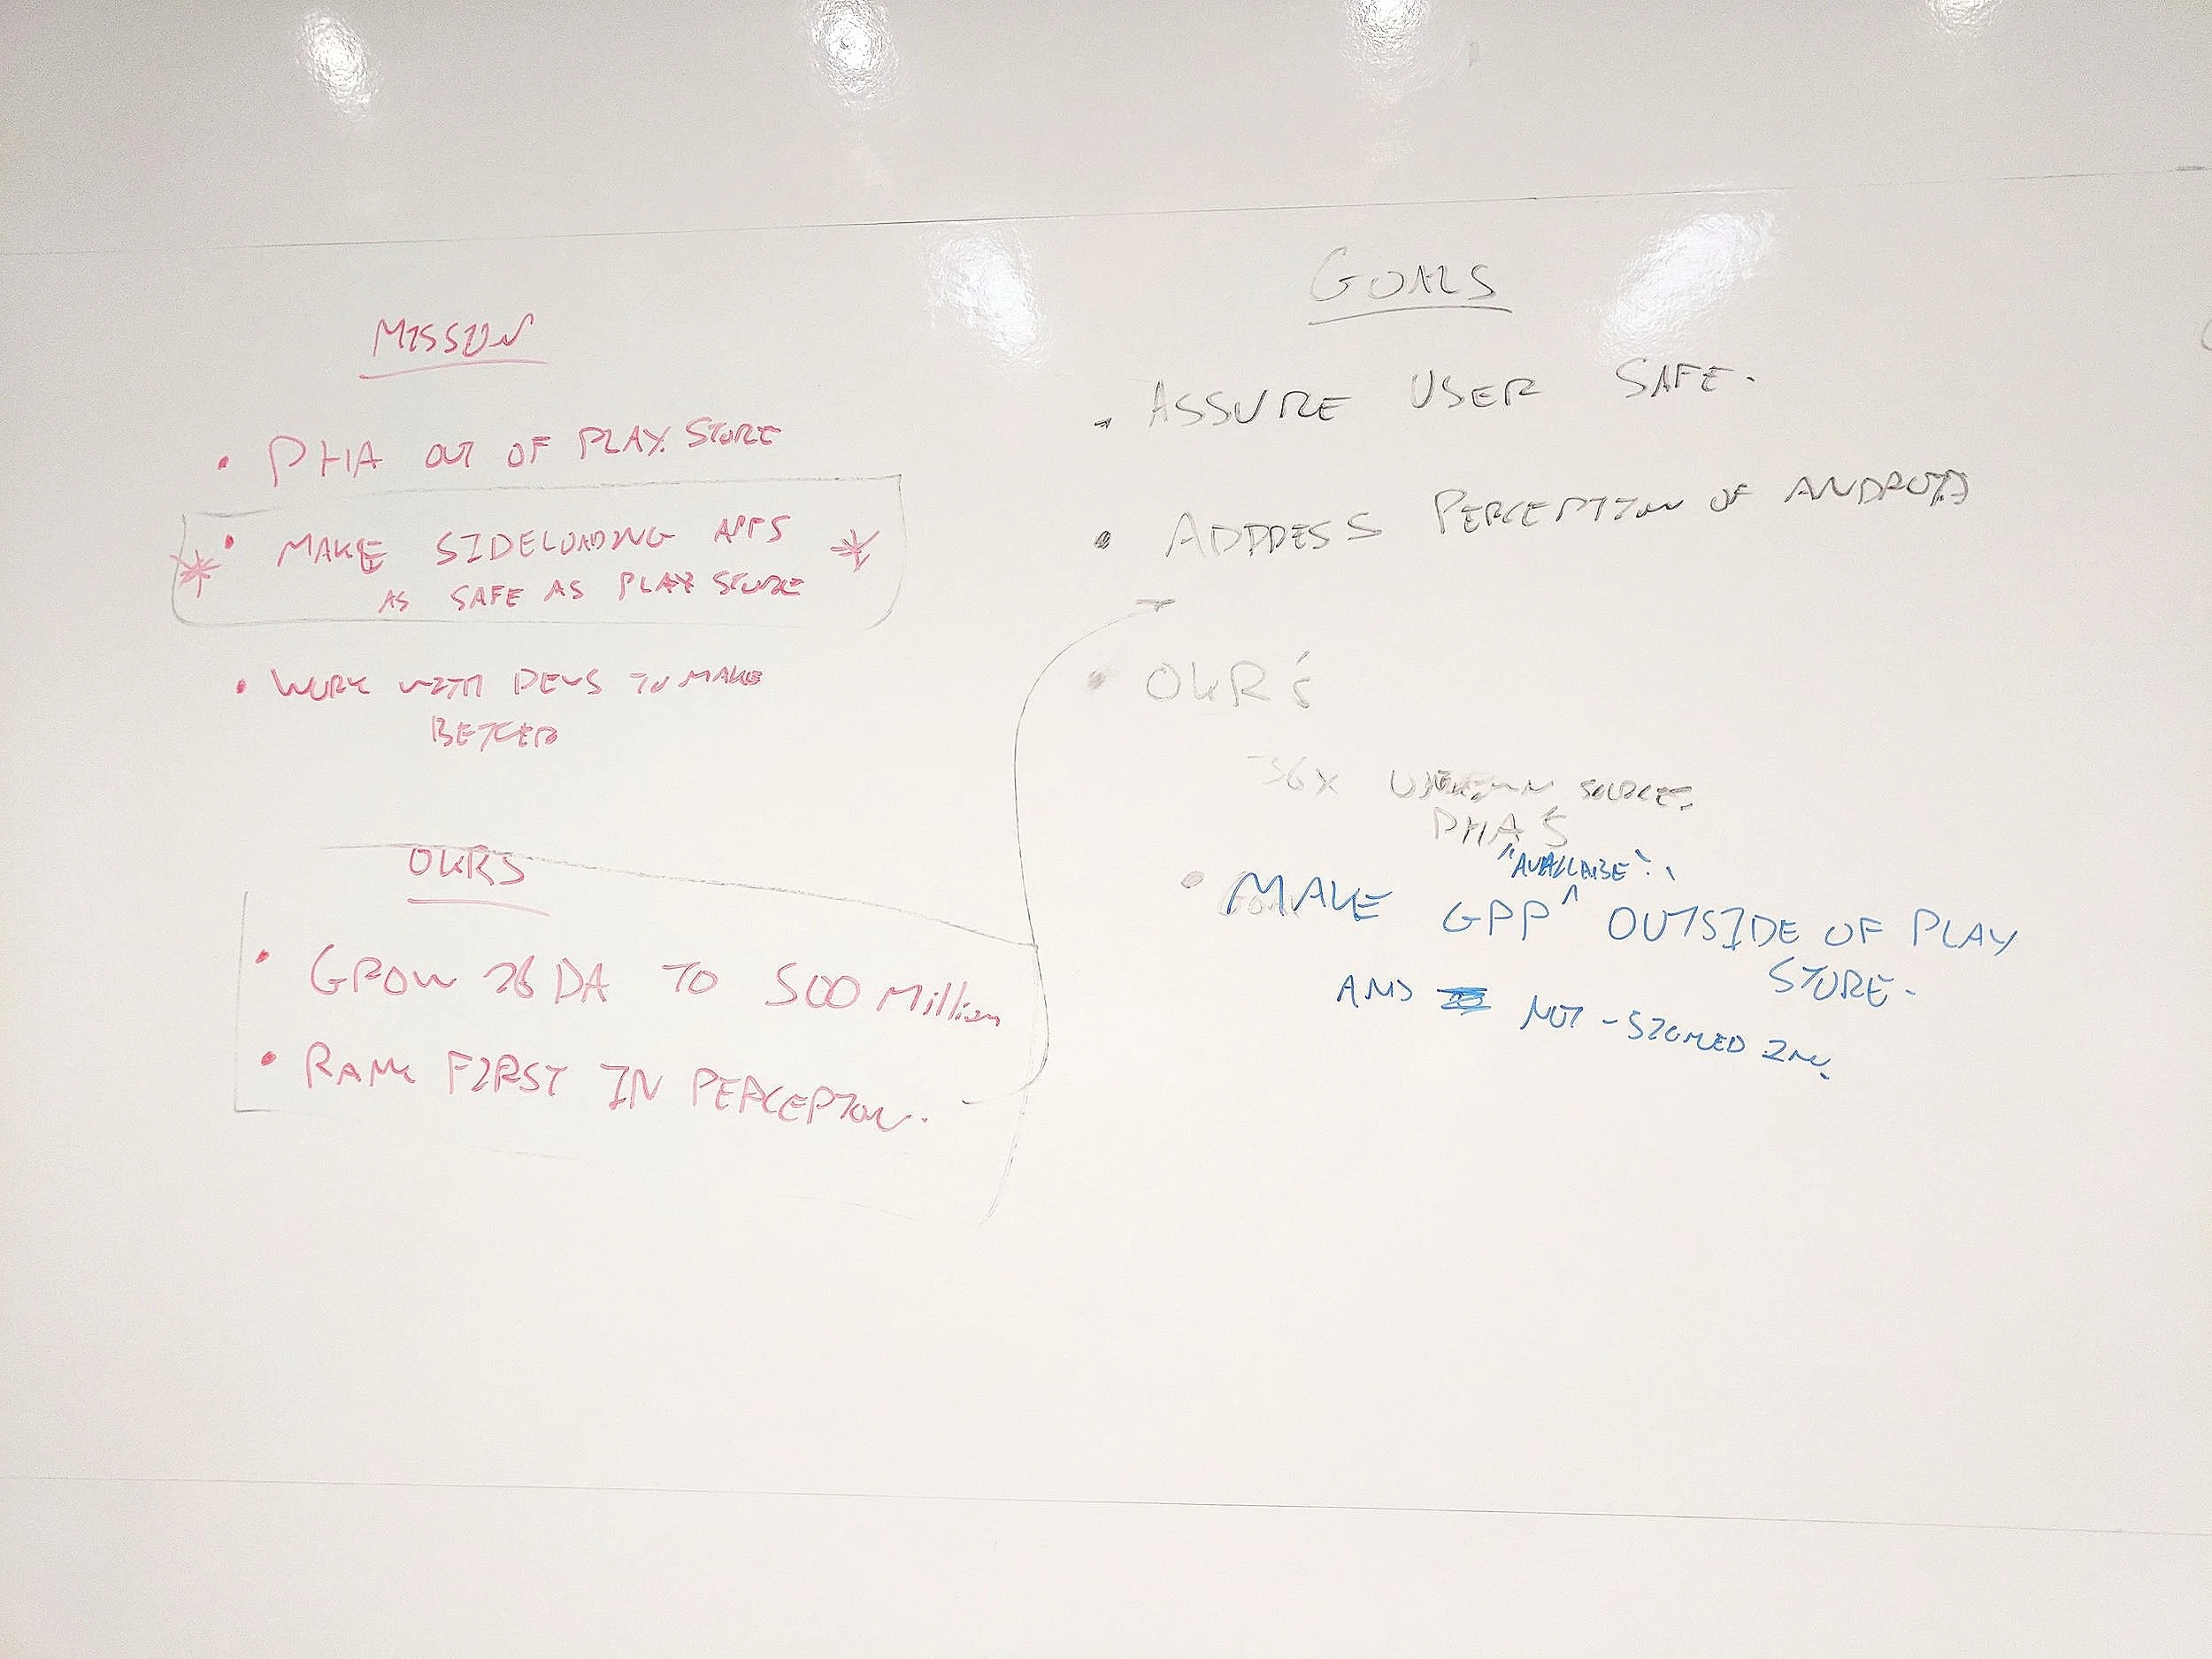 MISSION
• PHA OUT OF PLAY STORE
• MAKE SIDELOADING APPS
AS SAFE AS PLAY STORE
• WORK WITH DEVS TO MAKE
BETTER
OKRS
• GROW DA TO 500 Million
• RANK FIRST IN PERCEPTION.
GOALS
• ASSURE USER SAFE.
• ADDRESS PERCEPTION OF ANDROID
• OKR'S
36X UNKNOWN SOURCE
PHA'S
"AVAILABE"
• MAKE GPP ^ OUTSIDE OF PLAY
STORE.
AND NOT-SIGNED IN.